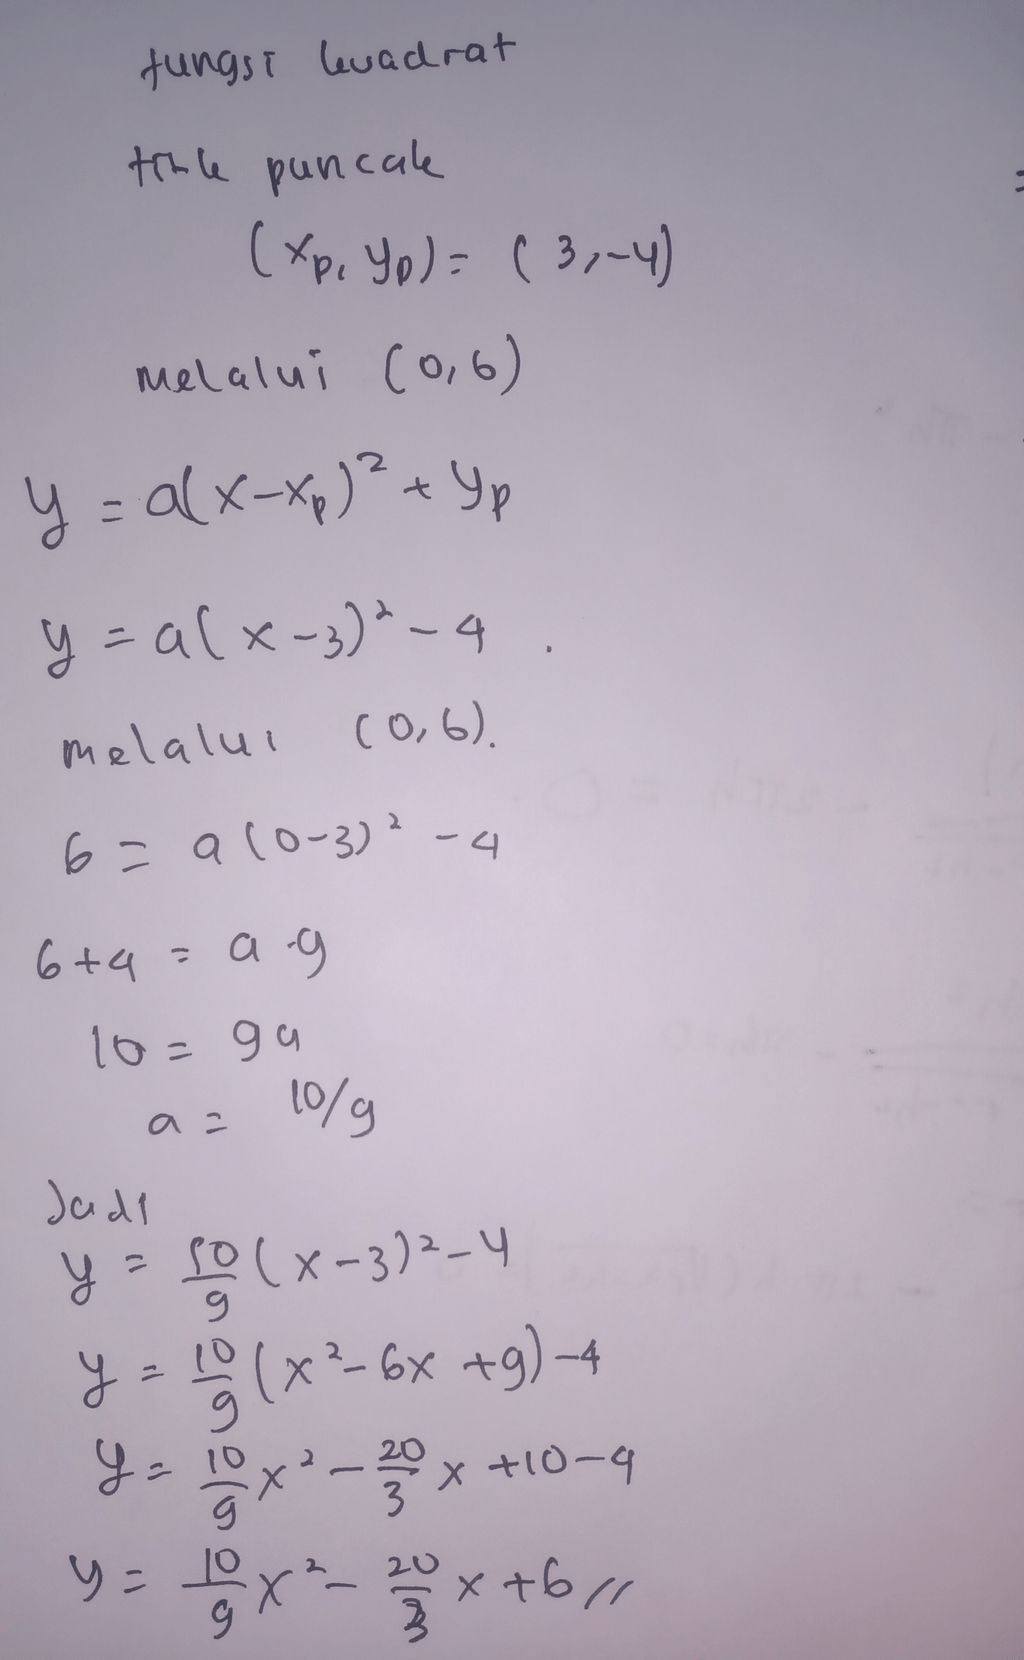 fungsi kuadrat
titik puncak
(xp, yp) = (3,-4)
melalui (0,6)
y = a(x-xp)² + yp
y = a(x-3)² - 4 .
melalui (0,6).
6 = a(0-3)² - 4
6+4 = a·9
10 = 9a
a = 10/9
Jadi
y = 10/9 (x-3)² - 4
y = 10/9 (x² - 6x + 9) - 4
y = 10/9 x² - 20/3 x + 10 - 4
y = 10/9 x² - 20/3 x + 6 //